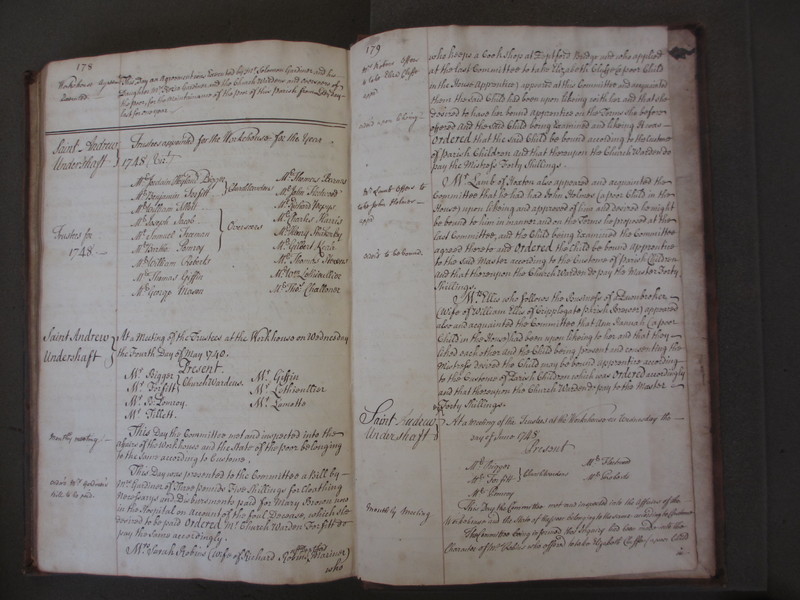 178
This Day an Agreement was Executed by Mr. Solomon Gardiner and his
Daughter
the poor, for the maintenance of the poor of this Parish from Lady Day
last for one year
Saint Andrew
Undershaft
Trustees appointed for the Workhouse for the Year
1748. Vizt.
Trustees for
1748.
Mr. Benjamin Forfitt
Mr. William Tillett
Mr. Joseph Jacob
Mr. Samuel Freeman
Mr. Pomroy
Mr. William Roberts
Mr. Thomas Giffin
Mr. George Mason
Churchwardens
Overseers
Mr. Thomas
Mr. John
Mr. Richard
Mr. Charles Harris
Mr. Henry
Mr. Gilbert
Mr. Thomas
Mr. Wm. Lethieullier
Mr. Thos. Challoner
Saint Andrew
Undershaft
At a Meeting of the Trustees at the Workhouse on Wednesday
the Fourth Day of May 1748.
Present.
Mr. Bigger
Mr. Forfitt
Church Wardens
Mr. Pomroy
Mr. Tillett.
Mr. Giffin
Mr. Lethieullier
Mr. Lamotte
Monthly meeting
This Day the Committee met and inspected into the
affairs of the Workhouse and the State of the poor belonging
to the same according to Custome.
Order'd Mr. Gardiner's
Bill to be paid.
This Day was presented to the Committee a Bill by
Mr. Gardiner of Three pounds Five Shillings for Cloathing
Necessarys and Disbursments paid for Mary Brown now
in the Hospital on Account of the foul Disease, which she
desired to be paid Ordered Mr. Church Warden Forfitt do
pay the same accordingly.
Mrs. Sarah Robins (Wife of Richard Robins of Deptford Mariner)
who
179
Mrs. Robins offers
to take Eliza. Cliffe
appr.
who keeps a Cook shop at Deptford Bridge and who applied
at the last Committee to take Elizabeth Cliffe (a poor Child
in the House Apprentice) appeared at this Committee and acquainted
them the said Child had been upon likeing with her, and that she
desired to have her bound apprentice on the Terms she before
offered And the said Child being Examined and likeing it was
Ordered that the said Child be bound according to the Custome
of Parish Children and that thereupon the Church Warden do
pay the Mistress Forty Shillings.
Mr. Lamb offers to
take John Holmes
appr.
Mr. Lamb of Hoxton also appeared and acquainted the
Committee that he had had John Holmes (a poor Child in the
House) upon likeing and approved of him and desired he might
be bound to him in manner and on the Terms he proposed at the
last Committee, and the Child being Examined the Committee
agreed thereto and Ordered the Child be bound Apprentice
to the said Master according to the Custome of Parish Children
and that thereupon the Church Warden do pay the Master Forty
Shillings.
order'd to be bound.
Mrs. Ellis who follows the Business of a Pawnbroker
(Wife of William Ellis of Cripplegate Parish) appeared
also and acquainted the Committee that Ann Hannah (a poor
Child in the House) had been upon likeing to her and that they
liked each other and the Child being present and consenting the
Mistress desired the Child may be bound apprentice according
to the Custome of Parish Children which was Ordered accordingly
and that thereupon the Church Warden do pay to the Master
Forty Shillings.
Saint Andrew
Undershaft
At a meeting of the Trustees at the Workhouse on Wednesday the
day of June 1748.
Present
Mr. Bigger
Mr. Forfitt
Church Wardens
Mr. Pomroy
Mr. Roberts
Monthly meeting
This Day the Committee met and inspected into the Affairs of the
Workhouse and the State of the poor belonging to the same according to Custome.
The Committee being informed the Enquiry had been made into the
Character of Mrs. Robins who offered to take Elizabeth Cliffe